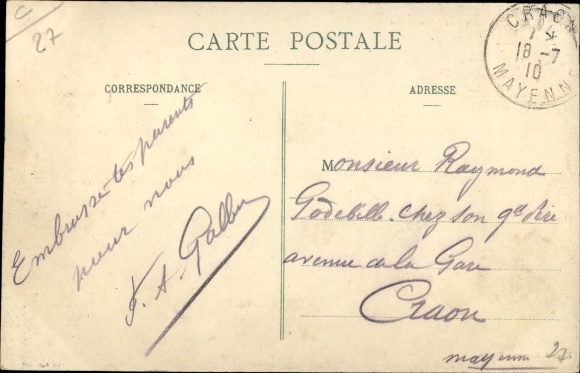 C
27
CARTE POSTALE
CRAON
7 *
18 -7
10
MAYENNE
CORRESPONDANCE
Embrasse tes parents
pour nous
ADRESSE
Monsieur Raymond
Godebille chez son gd Père
avenue de la Gare
Craon
mayenne
27